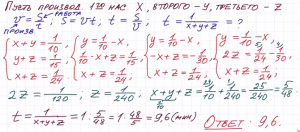 Пусть производ. 1го нас. x, второго - y, третьего - z
v = S/t ← работа ; S = vt ; t = S/v ; t = 1/(x+y+z) = ?
произв.
{ x+y = 1/10 ; { y = 1/10 - x, { y = 1/10 - x, { y = 1/10 - x,
y+z = 1/15 ; 1/10 - x + z = 1/15 ; z - x = 1/15 - 1/10, 2z = 1/24 - 1/30,
x+z = 1/24 x+z = 1/24 ; x+z = 1/24 x+z = 1/24
2z = 1/120 ; z = 1/240 , x+y+z = 1/10 + 1/240 = 25/240 = 5/48 .
t = 1/(x+y+z) = 1 : 5/48 = 1 · 48/5 = 9,6 (мин)
Ответ: 9,6.